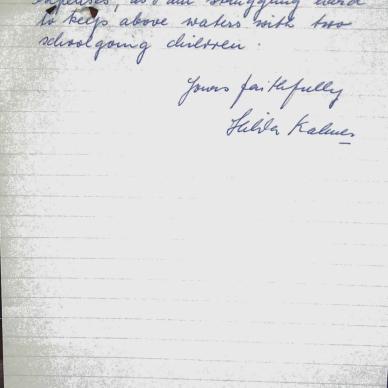 expenses, as I am struggling hard
to keep above waters with two
schoolgoing children.
Yours faithfully
Hilda